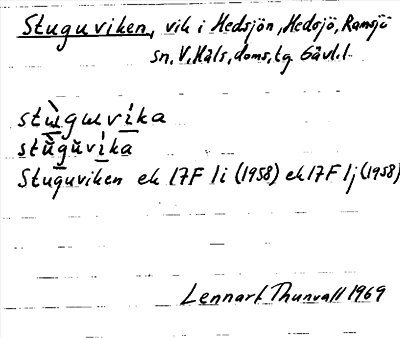 Stuguviken, vik i Hedsjön, Hedsjö, Ramsjö
sn, V. Häls, doms, tg Gävl. l
stɯ̀gɯvíka
stùguvíka
Stuguviken ek 17F 1i (1958) ek 17F 1j (1958)
Lennart Thunvall 1969